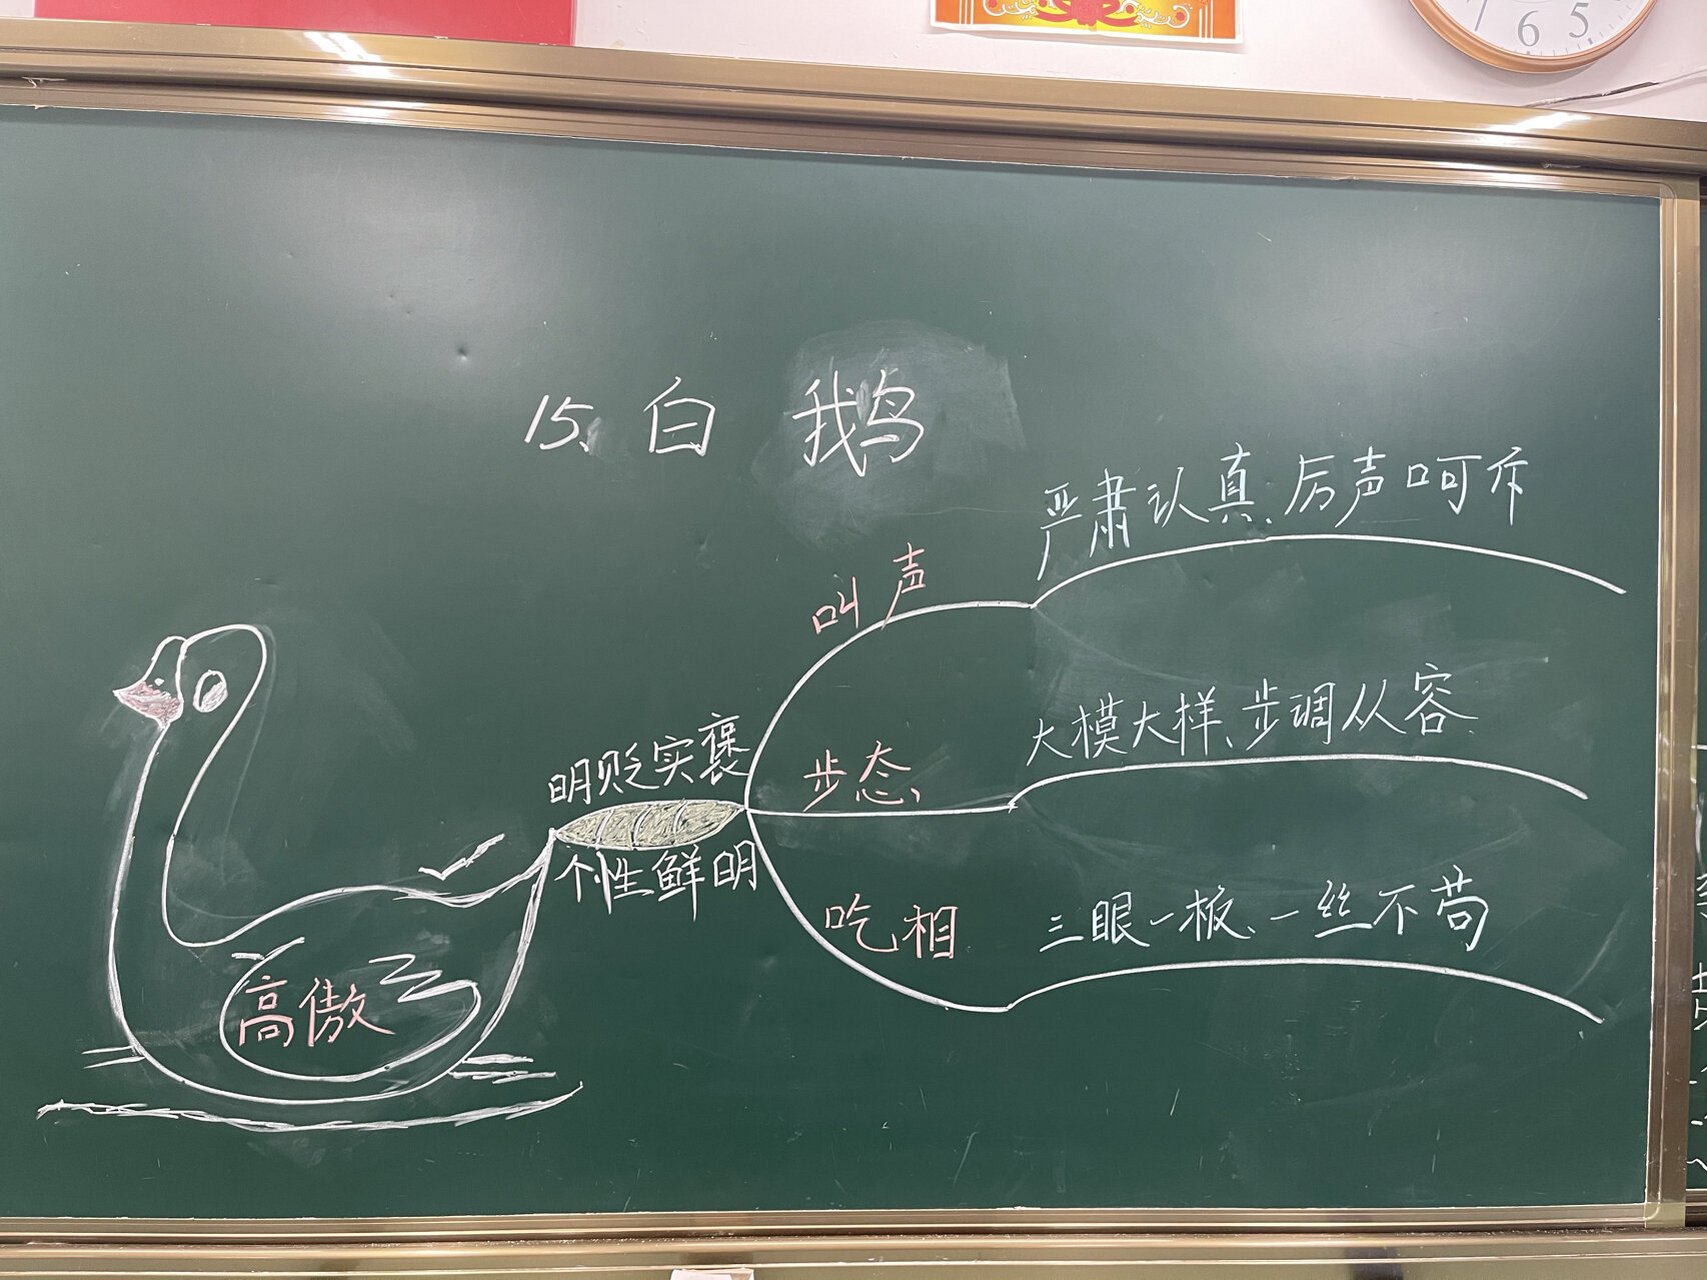 7 6 5
15、白 鹅
叫声
严肃认真、厉声呵斥
明贬实褒
个性鲜明
步态
大模大样、步调从容
吃相
三眼一板、一丝不苟
高傲